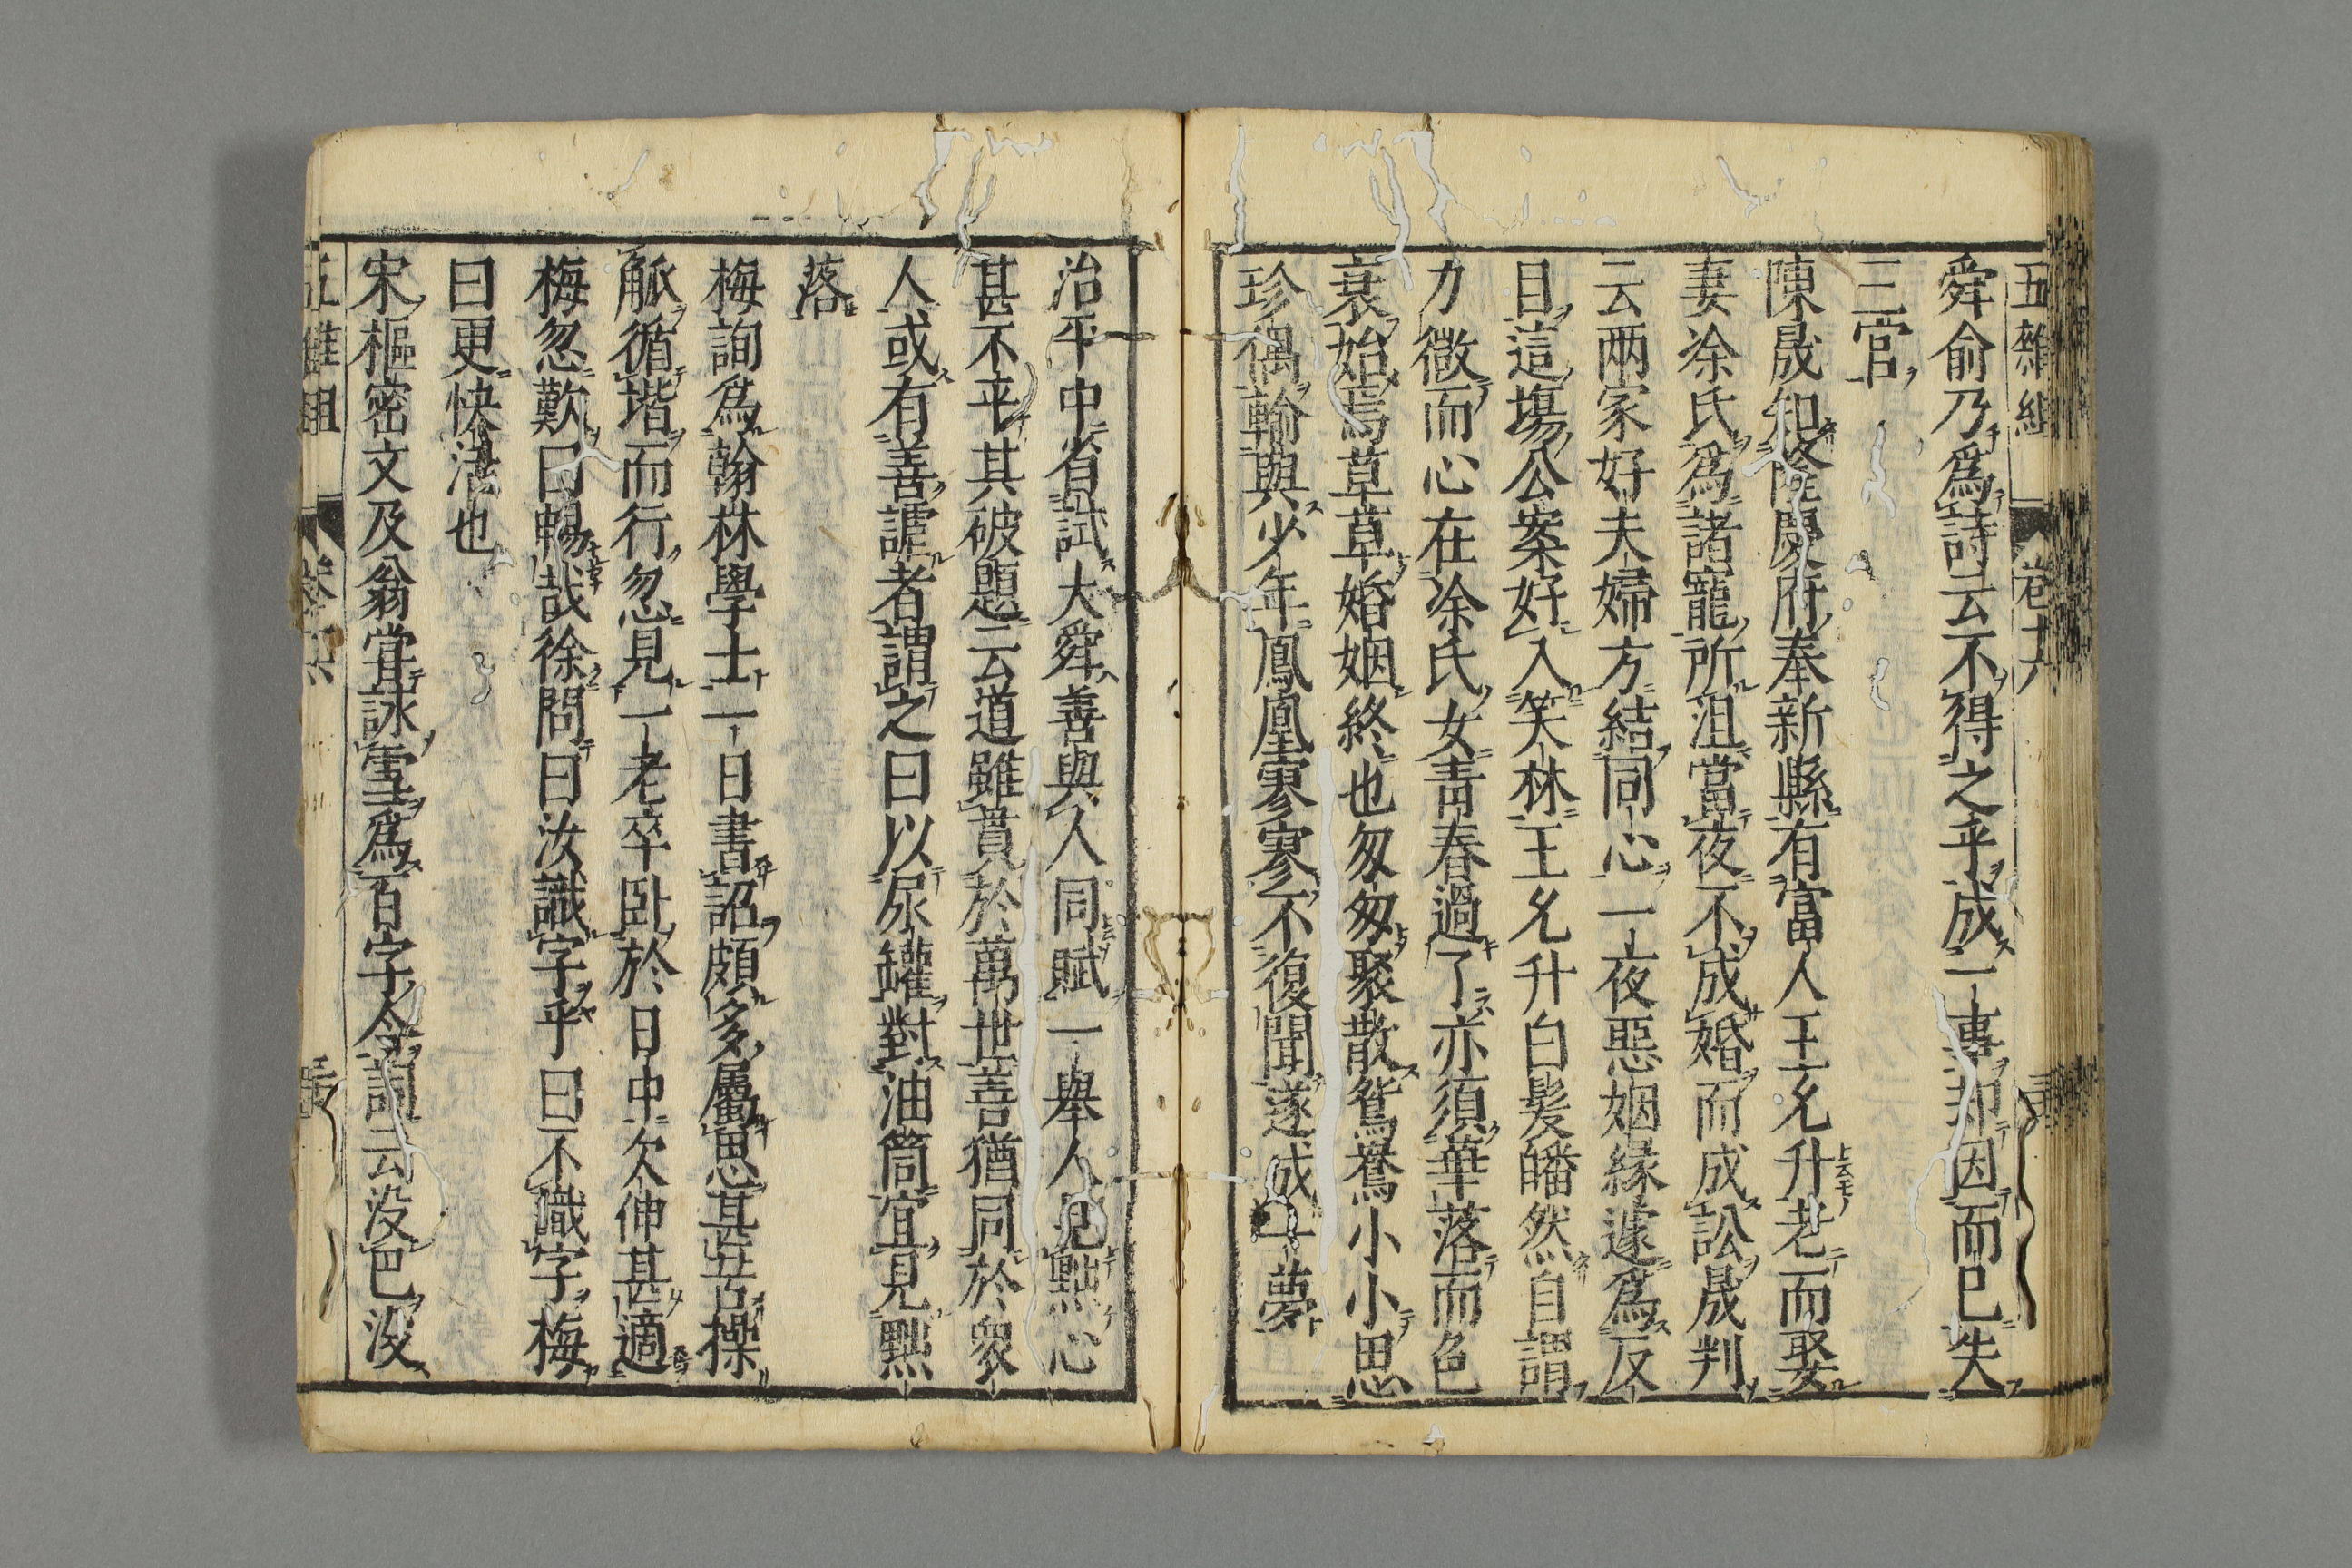 五雜組 卷十六
舜俞乃爲詩云不得之乎成一事却因而巳失
三官
陳晟知隆慶府奉新縣有富人王允升老而娶
妻涂氏爲諸寵所沮當夜不成婚而成訟晟判
云兩家好夫婦方結同心一夜惡姻緣遽爲反
目這場公案好入笑林王允升白髮皤然自謂
力微而心在涂氏女青春過了亦須華落而色
衰始焉草草婚姻終也匆匆聚散鴛鴦小小思
珍偶輸與少年鳳凰寥寥不復聞遂成一夢
治平中省試大舜善與人同賦一舉人見點心
甚不平其破題云道雖貫於萬世善猶同於衆
人或有善謔者謂之曰以尿罐對油筒宜見黜
落
梅詢爲翰林學士一日書詔頗多屬思甚苦操
觚循堦而行忽見一老卒臥於日中欠伸甚適
梅忽歎曰暢哉徐問曰汝識字乎曰不識字梅
曰更快活也
宋樞密文及翁嘗詠雪爲百字令詞云没巴没
五雜組 卷十六